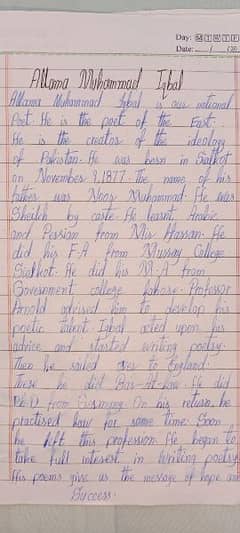 Day: M T W T F
Date: / /20
Allama Muhammad Iqbal
Allama Muhammad Iqbal is our national
Poet. He is the poet of the East.
He is the creator of the ideology
of Pakistan. He was born in Sialkot
on November 9, 1877. The name of his
father was Noor Muhammad. He was
Sheikh by caste. He learnt Arabic
and Passian from Mir Hassan. He
did his F.A from Murray College
Sialkot. He did his M.A from
Government college Lahore. Professor
Arnold advised him to develop his
poetic talent. Iqbal acted upon his
advice and started writing poetry.
Then he sailed over to England.
There he did Bar-At-Law. He did
Ph.D from Germany. On his return, he
practised law for some time. Soon
he left this profession. He began to
take full interest in writing poetry.
His poems give us the message of hope and
Success.